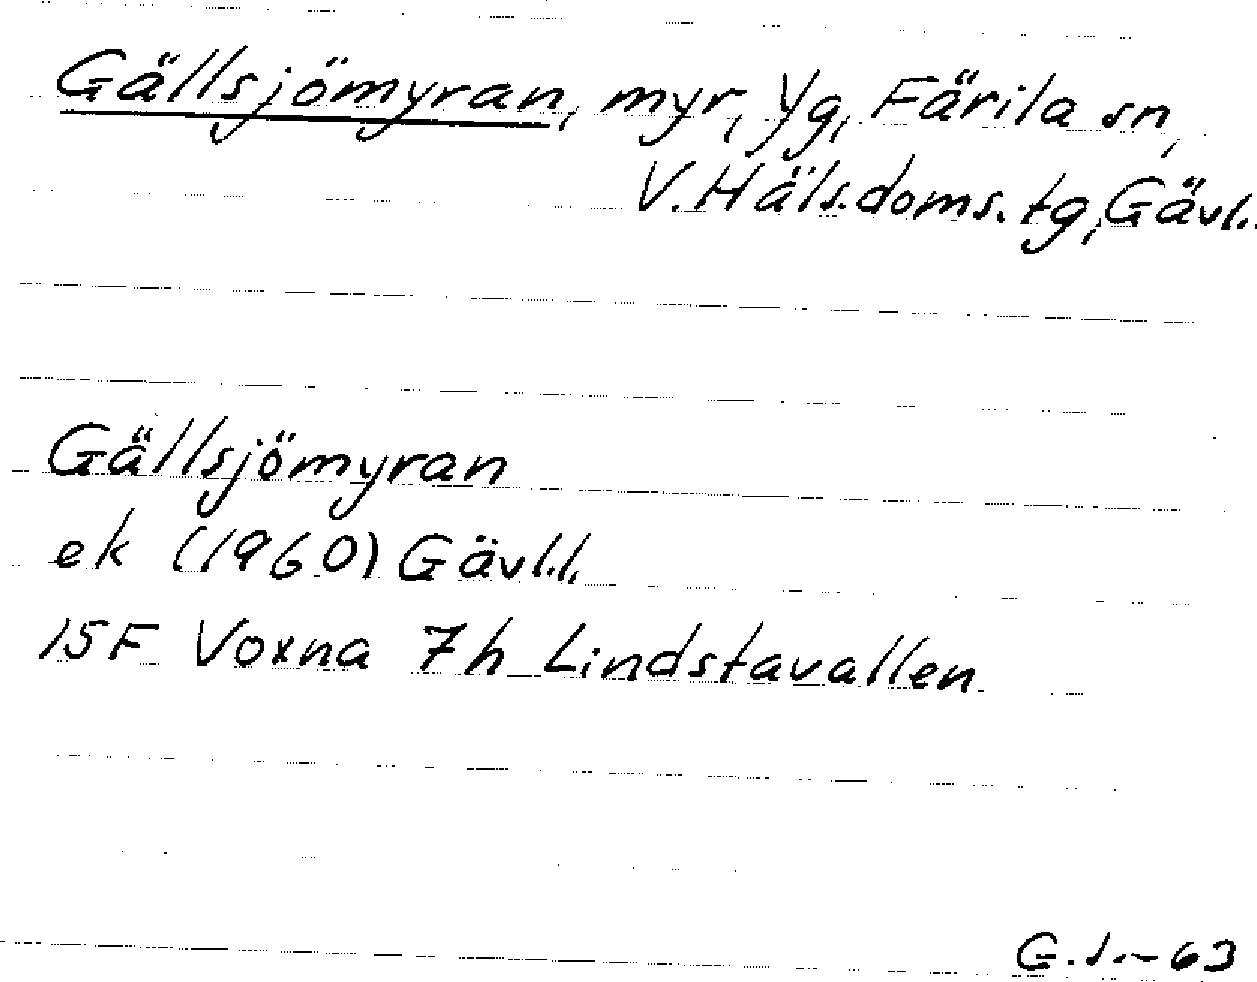 Gällsjömyran, myr, Yg, Färila sn,
V. Häls.doms.tg, Gävl.
Gällsjömyran
ek (1960) Gävl.l.
15F Voxna 7h Lindstavallen
G.J.-63